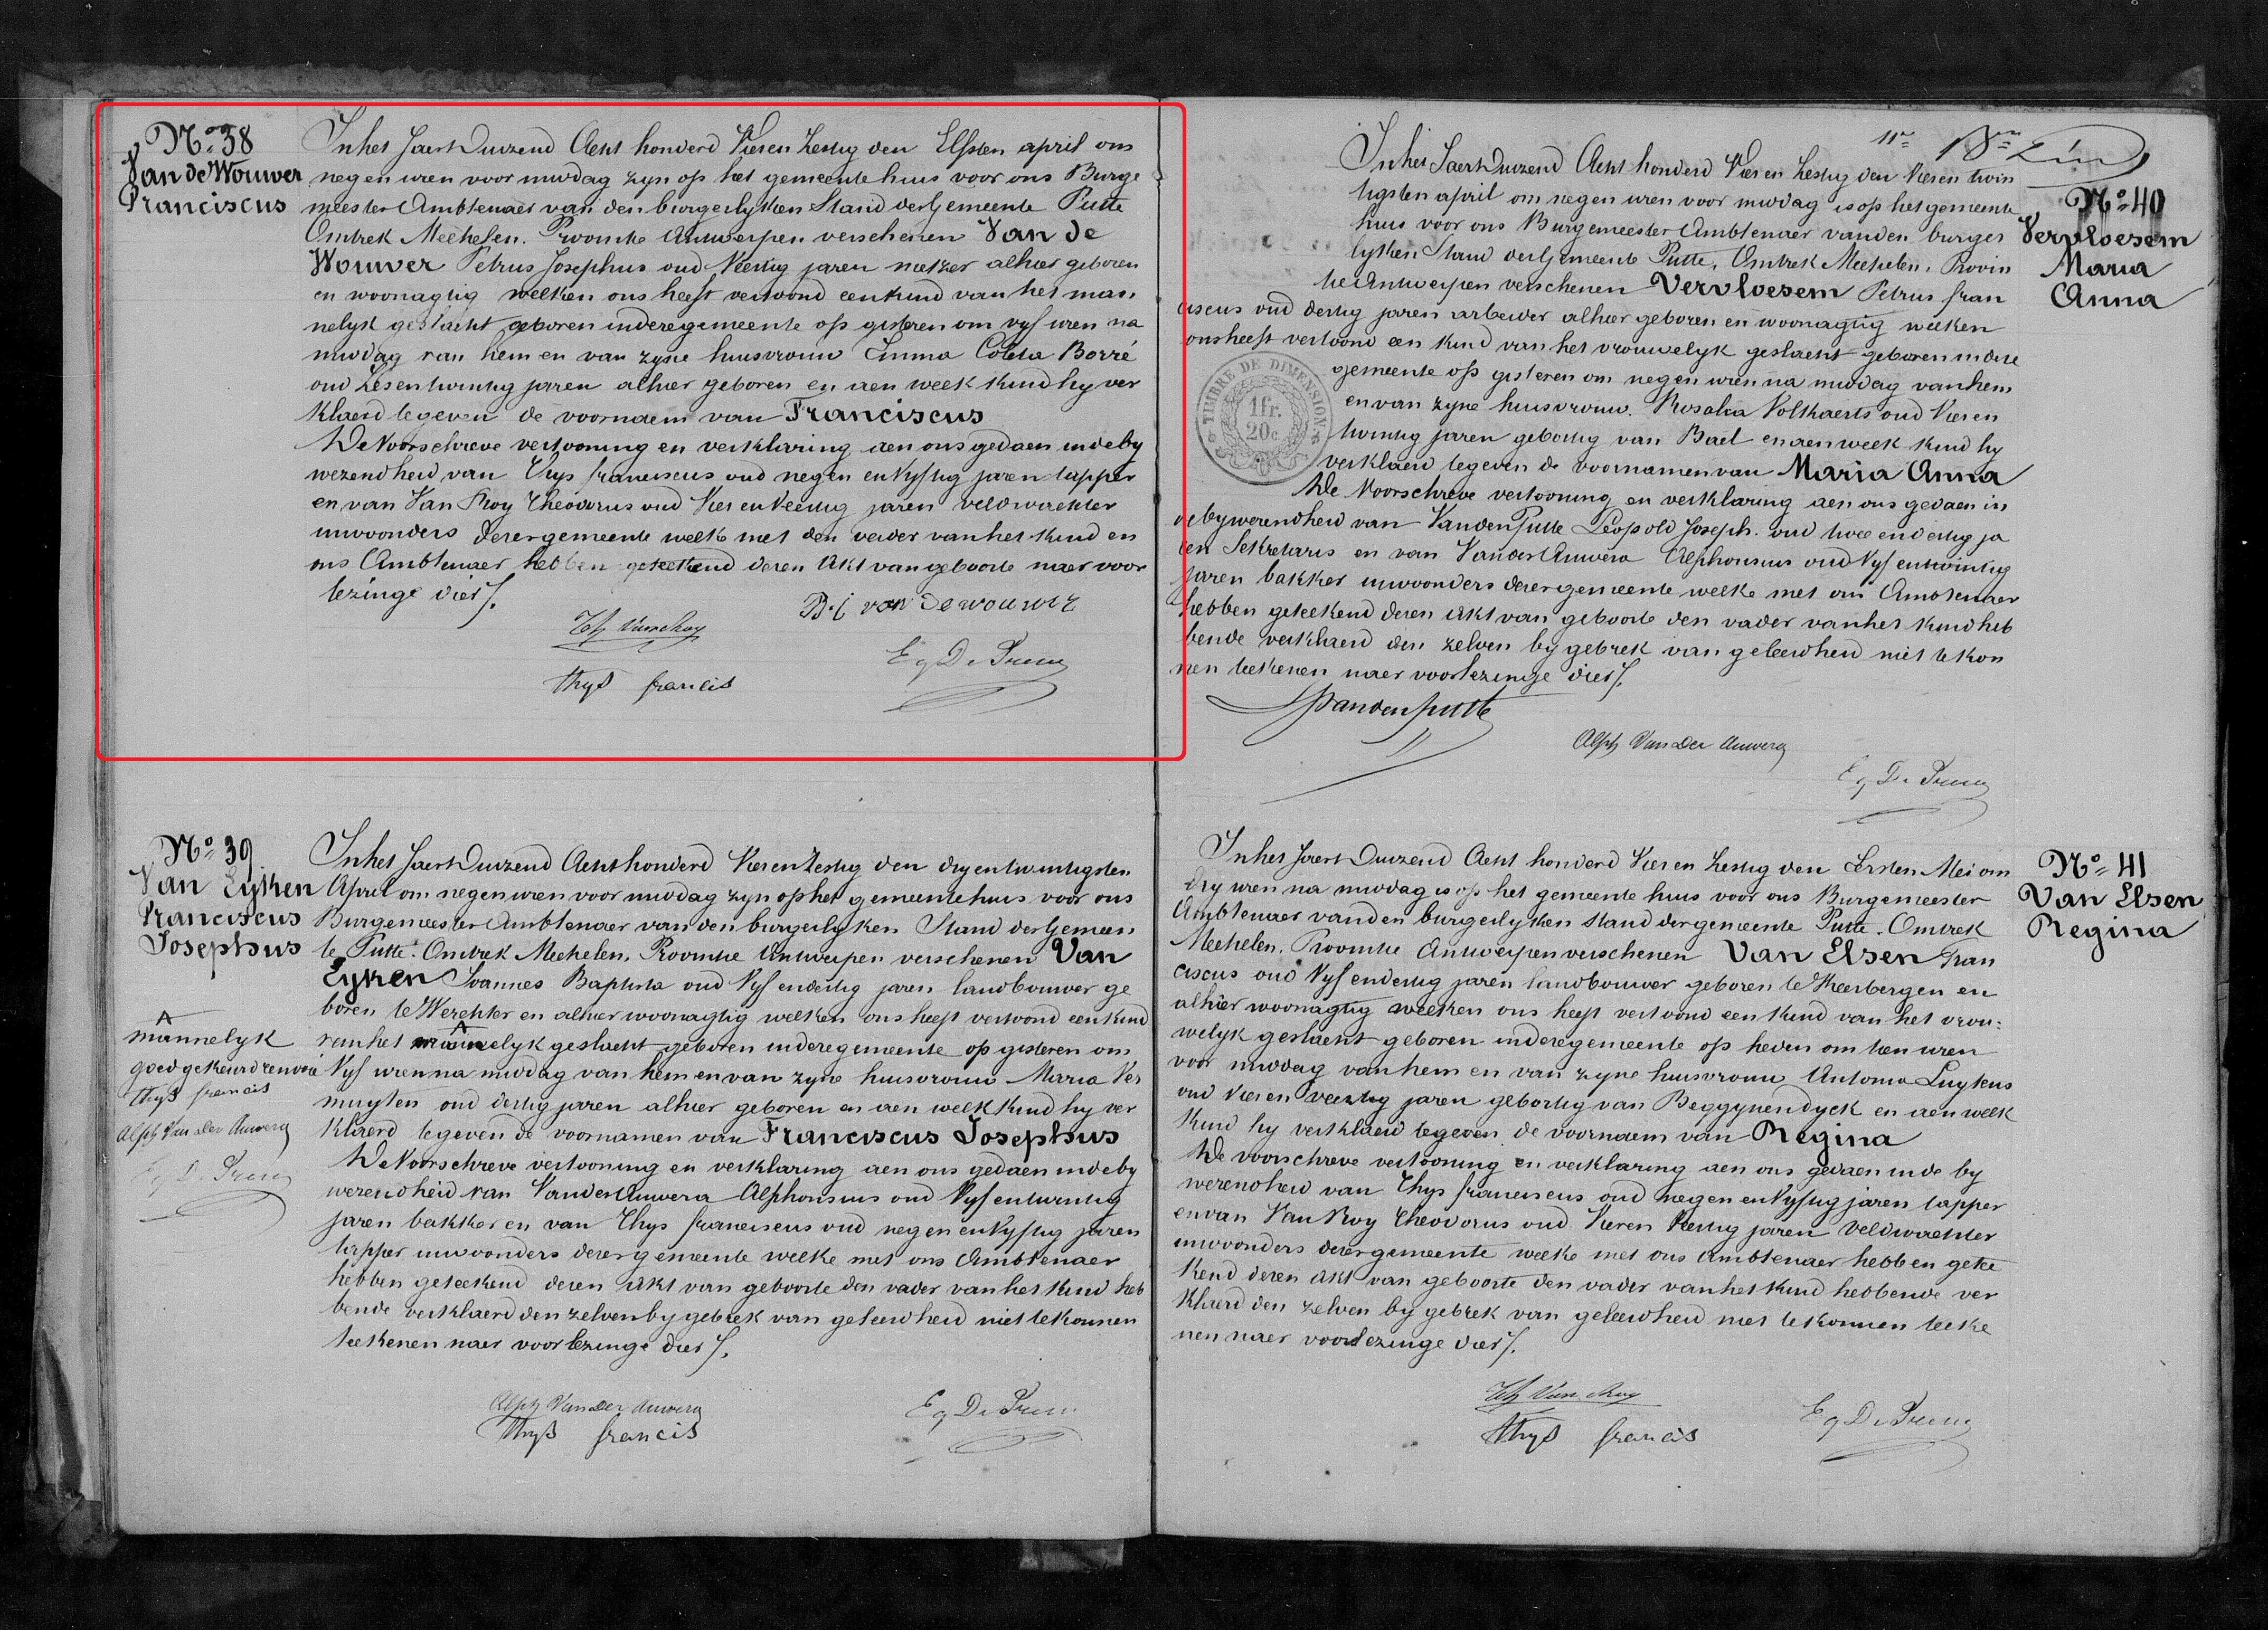 No 38
Van de Wouver
Franciscus
In het Jaer Duizend Acht honderd Vier en Zestig den Elfsten april om
negen uren voor middag zyn op het gemeente huis voor ons Burge
meester Ambtenaer van den burgerlyken Stand der Gemeente Putte
Omtrek Mechelen. Provintie Antwerpen verschenen Van de
Wouver Petrus Josephus oud Veertig jaren metzer alhier geboren
en woonagtig welken ons heeft vertoond een kind van het man
nelyk geslacht geboren in deze gemeente op gisteren om vyf uren na
middag van hem en van zyne huisvrouw Emma Coleta Borré
oud Zes en twintig jaren alhier geboren en aen welk kind hy ver
klaerd te geven de voornaem van Franciscus
De Voorschreve vertooning en verklaring aen ons gedaen in de by
wezendheid van Thys franciscus oud negen en Vyftig jaren tapper
en van Van Roy Theodorus oud Vier en Veertig jaren veldwachter
inwoonders dezer gemeente welke met den vader van het kind en
ons Ambtenaer hebben geteekend dezen Akt van geboorte naer voor
lezinge dies/.
Th Van Roy
P. J van De wouwer
thys francis
No 39
Van Eyken
Franciscus
Josephus
In het Jaer Duizend Acht honderd Vier en Zestig den dry en twintigsten
April om negen uren voor middag zyn op het gemeente huis voor ons
Burgemeester Ambtenaer van den burgerlyken Stand der Gemeen
te Putte. Omtrek Mechelen. Provintie Antwerpen verschenen Van
Eyken Joannes Baptista oud Vyf en dertig jaren landbouwer ge
boren te Werchter en alhier woonagtig welken ons heeft vertoond een kind
van het mannelyk geslacht geboren in deze gemeente op gisteren om
Vyf uren na middag van hem en van zyne huisvrouw Maria Ver
muyten oud dertig jaren alhier geboren en aen welk kind hy ver
klaerd te geven de voornamen van Franciscus Josephus
De Voorschreve vertooning en verklaring aen ons gedaen in de by
wezendheid van Van der Auwera Alphonsius oud Vyf en twintig
jaren bakker en van Thys franciscus oud negen en Vyftig jaren
tapper inwoonders dezer gemeente welke met ons Ambtenaer
hebben geteekend dezen Akt van geboorte den vader van het kind heb
bende verklaerd den zelven by gebrek van geleerdheid niet te konnen
teekenen naer voorlezinge dies/.
mannelyk
goedgekeurd
thys francis
Alph Van der Auwera
Alph Van Der Auwera
thys francis
No 40
Vervloesem
Maria
Anna
In het Jaer Duizend Acht honderd Vier en Zestig den Vier en twin
tigsten april om negen uren voor middag is op het gemeente
huis voor ons Burgemeester Ambtenaer van den burger
lyken Stand der Gemeente Putte, Omtrek Mechelen, Provin
tie Antwerpen verschenen Vervloesem Petrus fran
ciscus oud dertig jaren arbeider alhier geboren en woonagtig welken
ons heeft vertoond een kind van het vrouwelyk geslacht geboren in deze
gemeente op gisteren om negen uren na middag van hem
en van zyne huisvrouw. Rosalia Volkaerts oud Vier en
twintig jaren geboortig van Bael en aen welk kind hy
verklaerd te geven de voornamen van Maria Anna
De Voorschreve vertooning en verklaring aen ons gedaen in
de bywezendheid van Van den Putte Leopold Joseph. oud twee en dertig ja
ren Sekretaris en van Van der Auwera Alphonsius oud Vyf en twintig
jaren bakker inwoonders dezer gemeente welke met ons Ambtenaer
hebben geteekend dezen Akt van geboorte den vader van het kind heb
bende verklaerd den zelven by gebrek van geleerdheid niet te kon
nen teekenen naer voorlezinge dies/.
TIMBRE DE DIMENSION
1 fr.
20 c
Vandenputte
Alph Van Der Auwera
No 41
Van Elsen
Regina
In het Jaer Duizend Acht honderd Vier en Zestig den Eersten Mei om
dry uren na middag is op het gemeente huis voor ons Burgemeester
Ambtenaer van den burgerlyken stand der gemeente Putte. Omtrek
Mechelen. Provintie Antwerpen verschenen Van Elsen Fran
ciscus oud Vyf en dertig jaren landbouwer geboren te Keerbergen en
alhier woonagtig welken ons heeft vertoond een kind van het vrou=
welyk geslacht geboren in deze gemeente op heden om tien uren
voor middag van hem en van zyne huisvrouw Antonia Luykens
oud Vier en Veertig jaren geboortig van Beggynendyck en aen welk
kind hy verklaerd te geven de voornaem van Regina
De voorschreve vertooning en verklaring aen ons gedaen in de by
wezendheid van Thys franciscus oud negen en Vyftig jaren tapper
en van Van Roy Theodorus oud Vier en Veertig jaren Veldwachter
inwoonders dezer gemeente welke met ons Ambtenaer hebben getee
kend dezen Akt van geboorte den vader van het kind hebbende ver
klaerd den zelven by gebrek van geleerdheid niet te konnen teeke
nen naer voorlezinge dies/.
Th Van Roy
thys francis